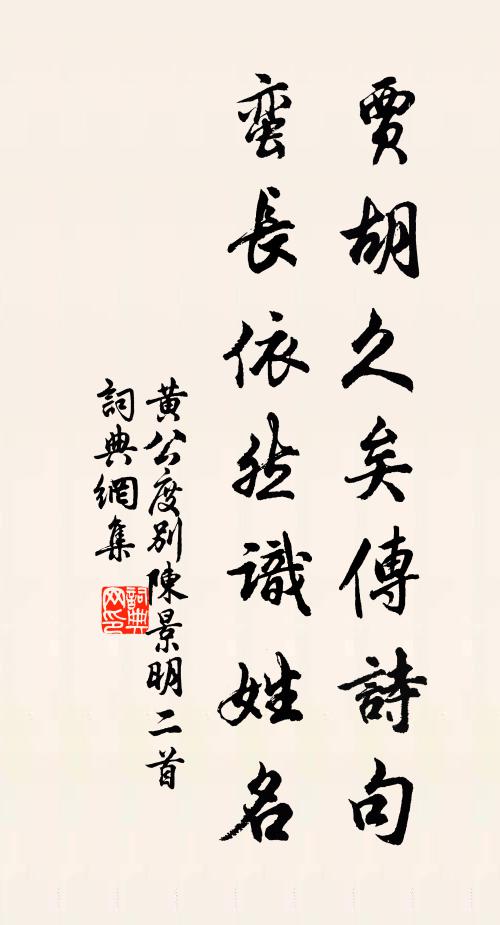 賈胡久矣傳詩句
蛮長依然識姓名
黃公度别陳景明二首
詞典網集
詞典网印